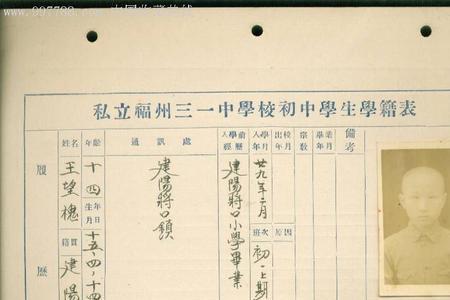 www.997788.com 中国收藏热线
私立福州三一中學校初中學生學籍表
備考
畢業年月
宗教
出校年月
原因
入學年月
廿九年二月
班次
初一上期
入學前經歷
建陽將口小學畢業
通訊處
建陽將口鎮
年齡
十四
生年月日
十五、四、十四
姓名
王望槐
籍貫
建陽
履歷